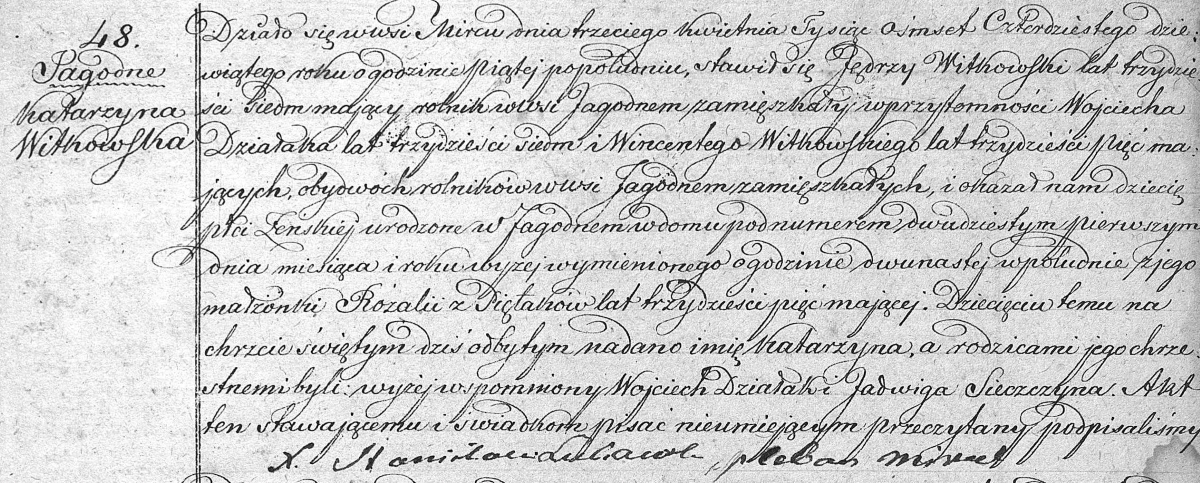 48.
Jagodne
Katarzyna
Witkowska
Działo się w wsi Mircu dnia trzeciego Kwietnia Tysiąc Ośmset Czterdziestego dzie-
wiątego roku o godzinie piątej popołudniu, stawił się Jędrzy Witkowski lat trzydzie
ści siedm mający rolnik w wsi Jagodnem zamięszkały w przytomności Wojciecha
Działaka lat trzydzieści siedm i Wincentego Witkowskiego lat trzydzieści pięć ma-
jących, obydwóch rolników w wsi Jagodnem zamięszkałych, i okazał nam dziecię
płci Zenskiej urodzone w Jagodnem w domu pod numerem dwudziestym pierwszym
dnia miesiąca i roku wyzej wymienionego o godzinie dwunastej w południe, z jego
małzonki Rózalii z Piętaków lat trzydzieści pięć mającej. Dziecięciu temu na
chrzcie świętym dziś odbytym nadano imię Katarzyna, a rodzicami jego chrze
stnemi byli: wyzej wspomniony Wojciech Działak i Jadwiga Sieczczyna. Akt
ten stawającemu i świadkom pisać nieumiejącym przeczytany, podpisaliśmy
X. Stanisław pleban